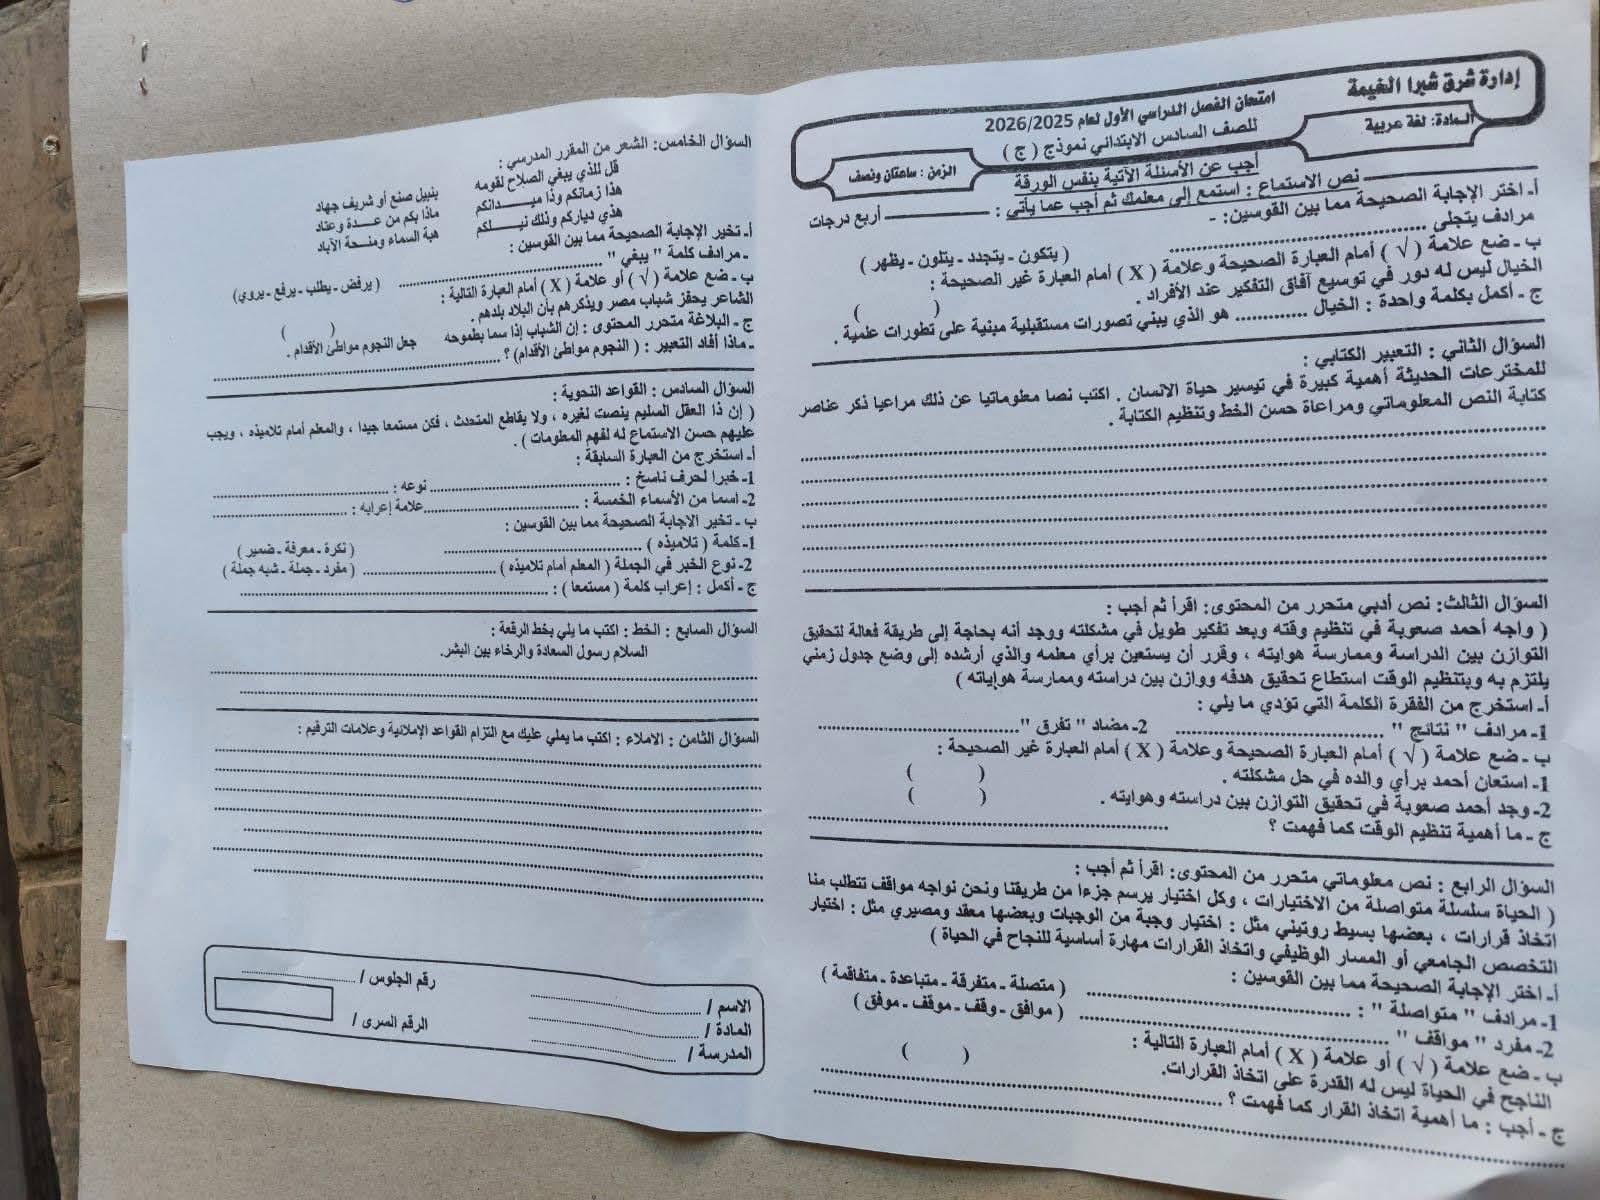 إدارة شرق شبرا الخيمة
امتحان الفصل الدراسي الأول لعام 2026/2025
المادة: لغة عربية
للصف السادس الابتدائي نموذج ( ج )
الزمن : ساعتان ونصف
أجب عن الأسئلة الآتية بنفس الورقة
نص الاستماع : استمع إلى معلمك ثم أجب عما يأتي : ــــــــ أربع درجات
أ- اختر الإجابة الصحيحة مما بين القوسين: -
مرادف يتجلى ........................ ( يتكون - يتجدد - يتلون - يظهر )
ب - ضع علامة ( √ ) أمام العبارة الصحيحة وعلامة ( X ) أمام العبارة غير الصحيحة :
الخيال ليس له دور في توسيع آفاق التفكير عند الأفراد . ( )
ج - أكمل بكلمة واحدة : الخيال ............. هو الذي يبني تصورات مستقبلية مبنية على تطورات علمية .
السؤال الثاني : التعبير الكتابي :
للمخترعات الحديثة أهمية كبيرة في تيسير حياة الانسان . اكتب نصا معلوماتيا عن ذلك مراعيا ذكر عناصر
كتابة النص المعلوماتي ومراعاة حسن الخط وتنظيم الكتابة .
السؤال الثالث: نص أدبي متحرر من المحتوى: اقرأ ثم أجب :
( واجه أحمد صعوبة في تنظيم وقته وبعد تفكير طويل في مشكلته ووجد أنه بحاجة إلى طريقة فعالة لتحقيق
التوازن بين الدراسة وممارسة هوايته ، وقرر أن يستعين برأي معلمه والذي أرشده إلى وضع جدول زمني
يلتزم به وبتنظيم الوقت استطاع تحقيق هدفه ووازن بين دراسته وممارسة هواياته )
أ- استخرج من الفقرة الكلمة التي تؤدي ما يلي :
1- مرادف " نتائج " ........................ 2- مضاد " تفرق "........................
ب - ضع علامة ( √ ) أمام العبارة الصحيحة وعلامة ( X ) أمام العبارة غير الصحيحة :
1- استعان أحمد برأي والده في حل مشكلته . ( )
2- وجد أحمد صعوبة في تحقيق التوازن بين دراسته وهوايته . ( )
ج - ما أهمية تنظيم الوقت كما فهمت ؟ ........................
السؤال الرابع : نص معلوماتي متحرر من المحتوى: اقرأ ثم أجب :
( الحياة سلسلة متواصلة من الاختيارات ، وكل اختيار يرسم جزءا من طريقنا ونحن نواجه مواقف تتطلب منا
اتخاذ قرارات ، بعضها بسيط روتيني مثل : اختيار وجبة من الوجبات وبعضها معقد ومصيري مثل : اختيار
التخصص الجامعي أو المسار الوظيفي واتخاذ القرارات مهارة أساسية للنجاح في الحياة )
أ- اختر الإجابة الصحيحة مما بين القوسين :
1- مرادف " متواصلة " : ........................ ( متصلة - متفرقة - متباعدة - متفاقمة )
2- مفرد " مواقف " ........................ ( موافق - وقف - موقف - موفق )
ب - ضع علامة ( √ ) أو علامة ( X ) أمام العبارة التالية :
الناجح في الحياة ليس له القدرة على اتخاذ القرارات. ( )
ج - أجب : ما أهمية اتخاذ القرار كما فهمت ؟ ........................
السؤال الخامس: الشعر من المقرر المدرسي :
قل للذي يبغي الصلاح لقومه بنبيل صنع أو شريف جهاد
هذا زمانكم وذا ميـــدانكم ماذا بكم من عـــدة وعناد
هذي دياركم وذلك نيـــلكم هبة السماء ومنـــحة الآباد
أ- تخير الإجابة الصحيحة مما بين القوسين :
- مرادف كلمة " يبغي " ........................ ( يرفض - يطلب - يرفع - يروي)
ب - ضع علامة ( √ ) أو علامة ( X ) أمام العبارة التالية :
الشاعر يحفز شباب مصر ويذكرهم بأن البلاد بلدهم . ( )
ج - البلاغة متحرر المحتوى : إن الشباب إذا سما بطموحه جعل النجوم مواطئ الأقدام .
- ماذا أفاد التعبير : ( النجوم مواطئ الأقدام) ؟ ........................
السؤال السادس : القواعد النحوية :
( إن ذا العقل السليم ينصت لغيره ، ولا يقاطع المتحدث ، فكن مستمعا جيدا ، والمعلم أمام تلاميذه ، ويجب
عليهم حسن الاستماع له لفهم المعلومات ) .
أ- استخرج من العبارة السابقة :
1- خبرا لحرف ناسخ : ........................ نوعه : ........................
2- اسما من الأسماء الخمسة : ........................ علامة إعرابه : ........................
ب - تخير الاجابة الصحيحة مما بين القوسين :
1- كلمة ( تلاميذه ) ........................ ( نكرة - معرفة - ضمير )
2- نوع الخبر في الجملة ( المعلم أمام تلاميذه ) ........................ ( مفرد - جملة - شبه جملة )
ج - أكمل : إعراب كلمة ( مستمعا ) : ........................
السؤال السابع : الخط : اكتب ما يلي بخط الرقعة :
السلام رسول السعادة والرخاء بين البشر.
السؤال الثامن : الاملاء : اكتب ما يملي عليك مع التزام القواعد الإملائية وعلامات الترقيم :
الاسم / ........................ رقم الجلوس / ........................
المادة / ........................
المدرسة / ........................ الرقم السرى /